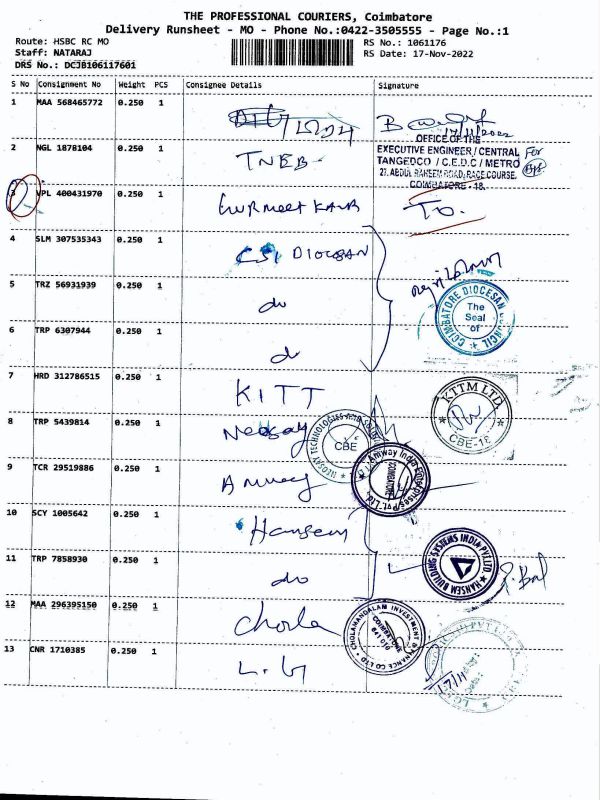 THE PROFESSIONAL COURIERS, Coimbatore
Delivery Runsheet - MO - Phone No.:0422-3505555 - Page No.:1
Route: HSBC RC MO
RS No.: 1061176
Staff: NATARAJ
RS Date: 17-Nov-2022
DRS No.: DCJB1061117601
S No Consignment No Weight PCS Consignee Details Signature
1 MAA 568465772 0.250 1
17/11/2022
2 NGL 1878104 0.250 1 TNEB
OFFICE OF THE
EXECUTIVE ENGINEER / CENTRAL For
TANGEDCO / C.E.D.C / METRO
27, ABDUL RAHEEM ROAD, RACE COURSE,
COIMBATORE - 18.
3 VPL 400431970 Gurmeet Kaur To.
4 SLM 307535343 0.250 1 CSI DIOCESAN
5 TRZ 56931939 0.250 1 do
COIMBATORE DIOCESAN COUNCIL
The
Seal
of
6 TRP 6307944 0.250 1 do
7 HRD 312786515 0.250 1 KITT
KTTM LTD.
CBE-18
8 TRP 5439814 0.250 1 Neosay
NEOSAY TECHNOLOGIES
CBE
9 TCR 29519886 0.250 1 Amway
Amway India Enterprises Pvt. Ltd.
COIMBATORE
10 SCY 1005642 0.250 1 Hansem
11 TRP 7858930 0.250 1 do
HANSEM BUILDING SYSTEMS INDIA PVT LTD
12 MAA 296395150 0.250 1 Chola
CHOLAMANDALAM INVESTMENT & FINANCE CO LTD
COIMBATORE
641 018
13 CNR 1710385 0.250 1 L.G
17/11